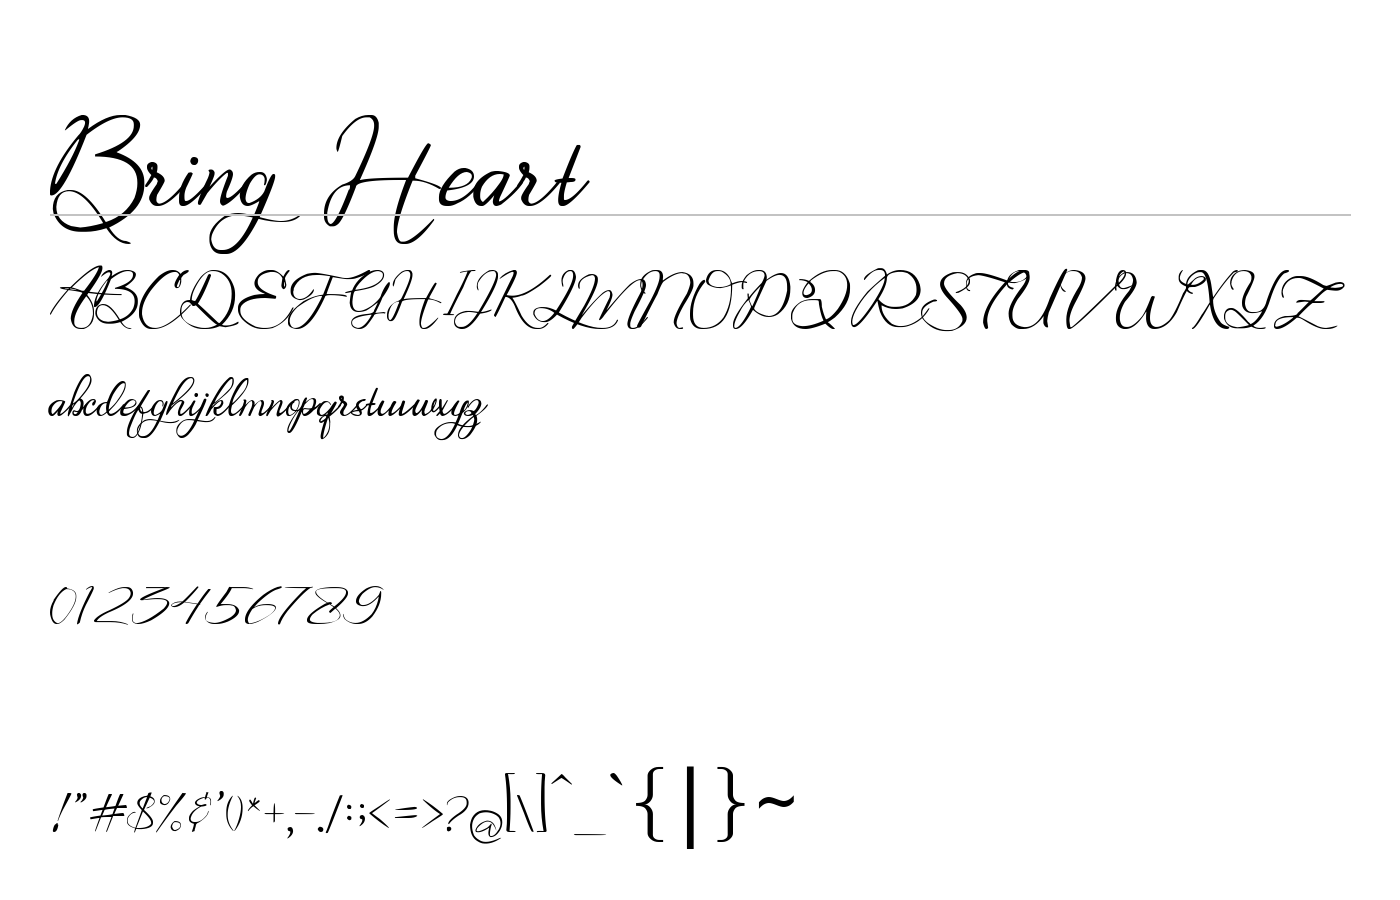 Bring Heart
ABCDEFGHIJKLMNOPQRSTUVWXYZ
abcdefghijklmnopqrstuvwxyz
0123456789
!"#$%&'()*+,-./:;<=>?@[\]^_`{|}~